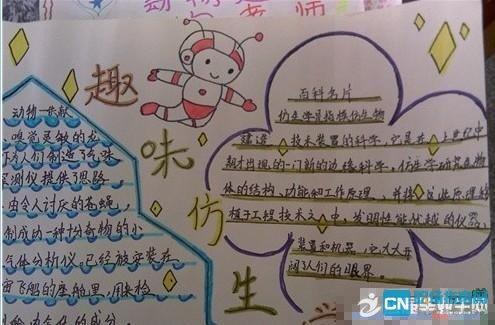 动物 老师
趣
味
仿
生
动物 共献
嗅觉灵敏的龙
虾为人们制造气味
探测仪提供了思路
由令人讨厌的苍蝇,
制成功一种十分奇特的小
气体分析仪。已经被安装在
宙飞船的座舱里,用来检
舱内气体的成分。
百科名片
仿生学是指模仿生物
建造技术装置的科学,它是在上世纪中
期才出现的一门新的边缘科学,仿生学研究生物
体的结构、功能和工作原理,并将这些原理移
植于工程技术之中,发明性能优越的仪器、
装置和机器,它大大开
阔了人们的眼界。
CN